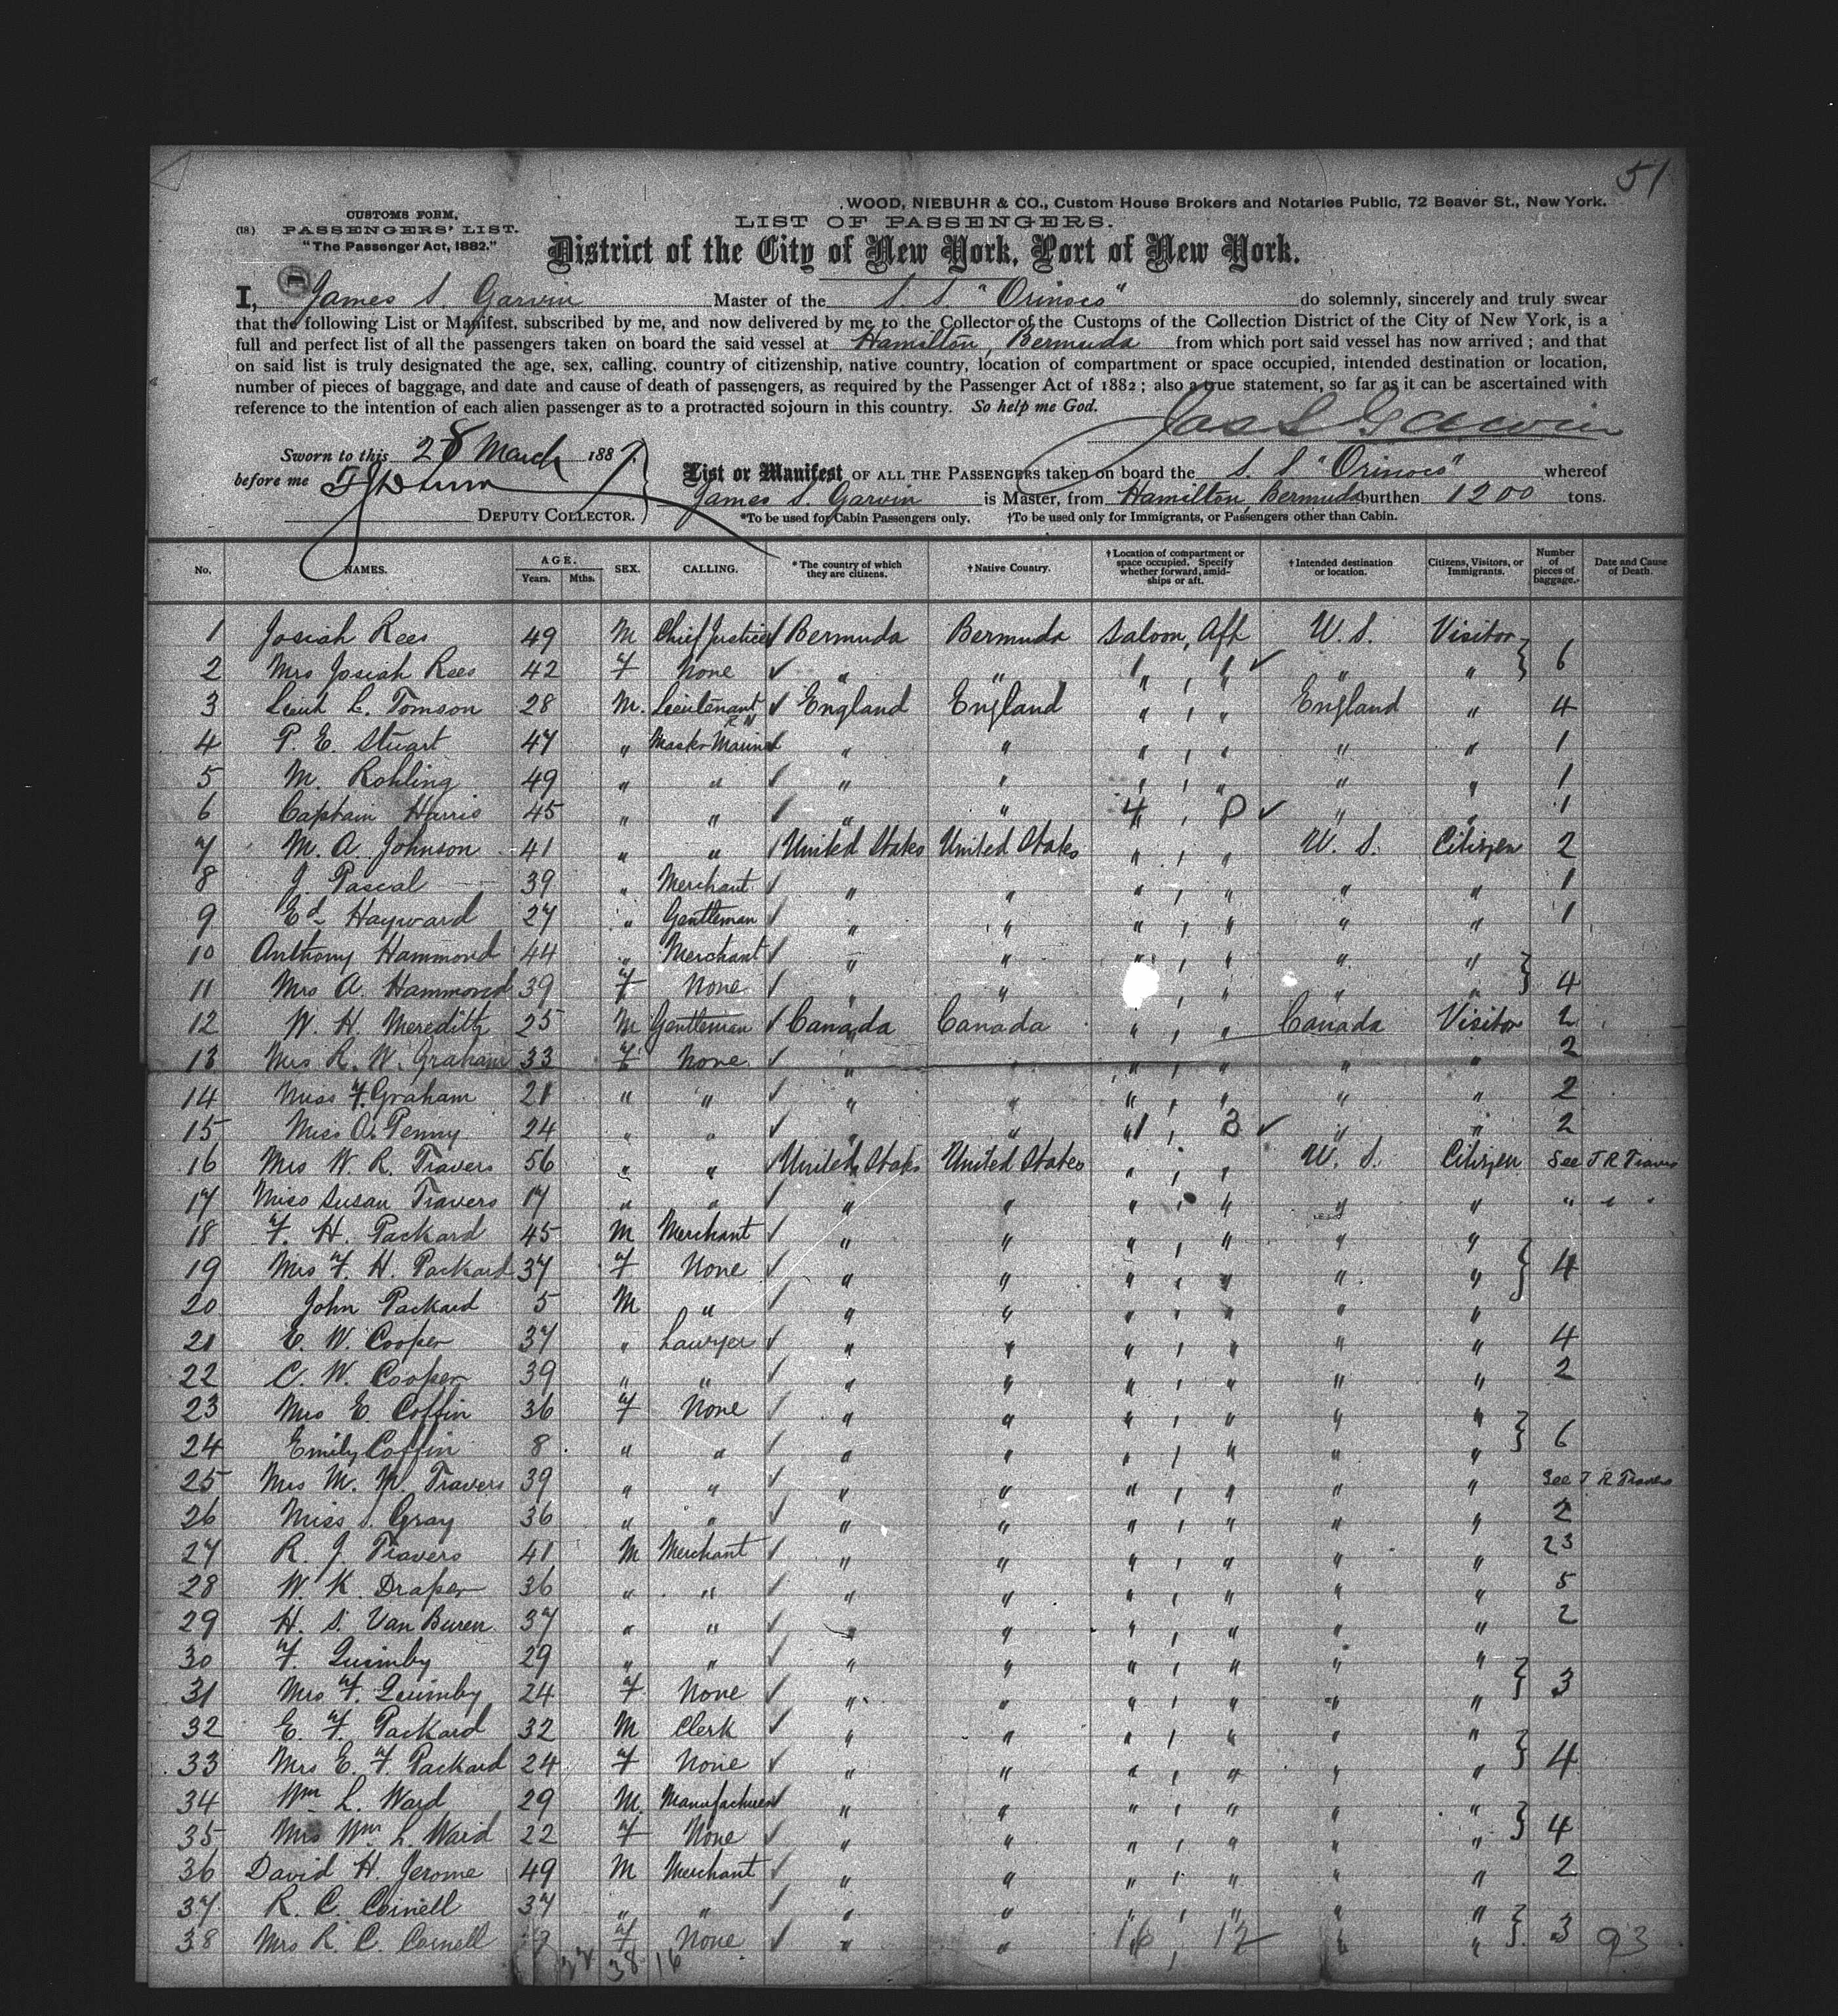 51
WOOD, NIEBUHR & CO., Custom House Brokers and Notaries Public, 72 Beaver St., New York.
(18.) CUSTOMS FORM,
PASSENGERS' LIST.
"The Passenger Act, 1882."
LIST OF PASSENGERS.
District of the City of New York, Port of New York.
I, James S. Garvin Master of the S. S. "Orinoco" do solemnly, sincerely and truly swear
that the following List or Manifest, subscribed by me, and now delivered by me to the Collector of the Customs of the Collection District of the City of New York, is a
full and perfect list of all the passengers taken on board the said vessel at Hamilton, Bermuda from which port said vessel has now arrived; and that
on said list is truly designated the age, sex, calling, country of citizenship, native country, location of compartment or space occupied, intended destination or location,
number of pieces of baggage, and date and cause of death of passengers, as required by the Passenger Act of 1882; also a true statement, so far as it can be ascertained with
reference to the intention of each alien passenger as to a protracted sojourn in this country. So help me God.
Jas S Garvin
Sworn to this 28 March 1887.
before me
DEPUTY COLLECTOR.
List or Manifest OF ALL THE PASSENGERS taken on board the S. S. "Orinoco" whereof
James S. Garvin is Master, from Hamilton, Bermuda burthen 1200 tons.
*To be used for Cabin Passengers only. †To be used only for Immigrants, or Passengers other than Cabin.
No. NAMES. AGE. Years. Mths. SEX. CALLING. *The country of which they are citizens. †Native Country. †Location of compartment or space occupied. Specify whether forward, amidships or aft. †Intended destination or location. Citizens, Visitors, or Immigrants. Number of pieces of baggage. Date and Cause of Death.
1 Josiah Rees 49 M Chief Justice ✓ Bermuda Bermuda Saloon, Aft U. S. Visitor
2 Mrs Josiah Rees 42 F None ✓ " " " , " ✓ " " } 6
3 Lieut L. Tomson 28 M. Lieutenant R N ✓ England England " , " England " 4
4 P. E. Stuart 47 " Master Mariner ✓ " " " , " " " 1
5 M. Rohling 49 " " ✓ " " " , " " " 1
6 Captain Harris 45 " " ✓ " " 4 , ✓ " " 1
7 M. A. Johnson 41 " " ✓ United States United States " , " U. S. Citizen 2
8 J. Pascal 39 " Merchant ✓ " " " , " " " 1
9 Ed Hayward 27 " Gentleman ✓ " " " , " " " 1
10 Anthony Hammond 44 " Merchant ✓ " " " , " " "
11 Mrs A. Hammond 39 F None ✓ " " , " " " } 4
12 W. H. Meredith 25 M Gentleman ✓ Canada Canada " , " Canada Visitor 2
13 Mrs R. W. Graham 33 F None ✓ " " " , " " " 2
14 Miss F. Graham 21 " " ✓ " " " , " " " 2
15 Miss A. Penny 24 " " ✓ " " 1 , 3 ✓ " " 2
16 Mrs W. R. Travers 56 " " ✓ United States United States " , " U. S. Citizen See T R Travers
17 Miss Susan Travers 17 " " ✓ " " " , " " " " " "
18 F. H. Packard 45 M Merchant ✓ " " " , " " "
19 Mrs F. H. Packard 37 F None ✓ " " " , " " " } 4
20 John Packard 5 M " ✓ " " " , " " "
21 E. W. Cooper 37 " Lawyer ✓ " " " , " " " 4
22 C. W. Cooper 39 " " ✓ " " " , " " " 2
23 Mrs E. Coffin 36 F None ✓ " " " , " " "
24 Emily Coffin 8 " " ✓ " " " , " " " } 6
25 Mrs M. M. Travers 39 " " ✓ " " " , " " " See T. R Travers
26 Miss S. Gray 36 " " ✓ " " " , " " " 2
27 R. J. Travers 41 M Merchant ✓ " " " , " " " 23
28 W. K. Draper 36 " " ✓ " " " , " " " 5
29 H. S. Van Buren 37 " " ✓ " " " , " " " 2
30 F. Quimby 29 " " ✓ " " " , " " "
31 Mrs F. Quimby 24 F None ✓ " " " , " " " } 3
32 E. F. Packard 32 M Clerk ✓ " " " , " " "
33 Mrs E. F. Packard 24 F None ✓ " " " , " " " } 4
34 Wm L. Ward 29 M. Manufacturer ✓ " " " , " " "
35 Mrs Wm L. Ward 22 F None ✓ " " " , " " " } 4
36 David H. Jerome 49 M Merchant ✓ " " " , " " " 2
37 R. C. Cornell 37 " " ✓ " " " , " " "
38 Mrs R. C. Cornell F None ✓ " " 16 , 12 " " } 3 93
38 16